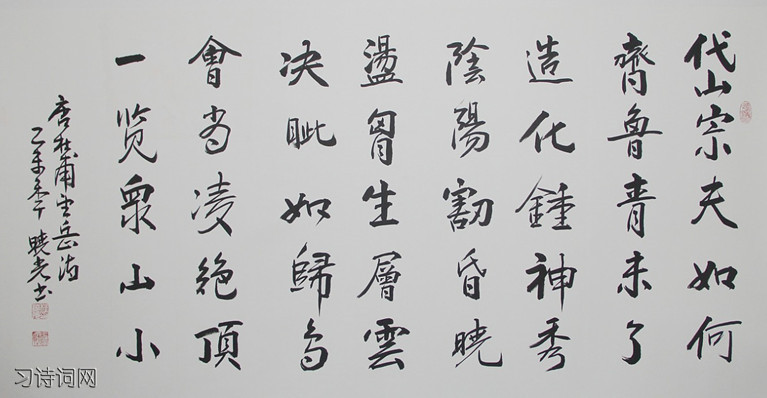 岱宗夫如何
齊魯青未了
造化鍾神秀
陰陽割昏曉
盪胷生層雲
决眦如歸鳥
會當凌絕頂
一览眾山小
唐杜甫望岳诗
乙未年 曉光书
习诗词网